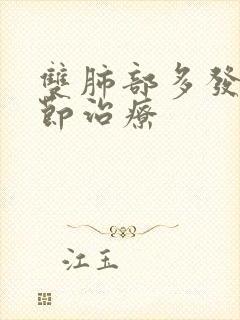 雙肺部多發
節治療
江玉